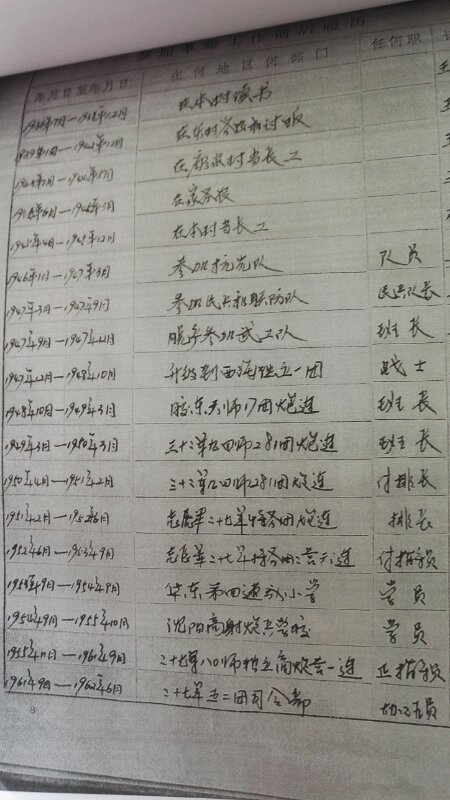 参加革命工作前后履历
年月日至年月日 在何地区何部门 任何职
在本村读书
在本村务农和讨饭
1944年12月 在村当长工
在家务农
1945年4月—1945年12月 在本村当长工
1946年1月—1947年3月 参加抗先队 队员
1947年3月—1947年9月 参加民兵和联防队 民兵队长
1947年9月—1947年12月 脱产参加武工队 班长
1947年12月—1948年10月 升级到西海独立一团 战士
1948年10月—1949年3月 胶东六师17团炮连 班长
1949年3月—1950年3月 三十二军九四师281团炮连 班长
1950年4月—1951年2月 三十二军九四师281团炮连 付排长
1951年2月—1952年6月 志愿军二十七军炮连 排长
1952年6月—1953年9月 志愿军二十七军 付指导员
1953年9月—1954年9月 华东第四速成小学 学员
1954年9月—1955年10月 沈阳高射炮兵学校 学员
1955年11月—1961年9月 二十七军八〇师独立高炮营一连 正指导员
1961年9月—1962年6月 二十七军五二团司令部 协理员
8